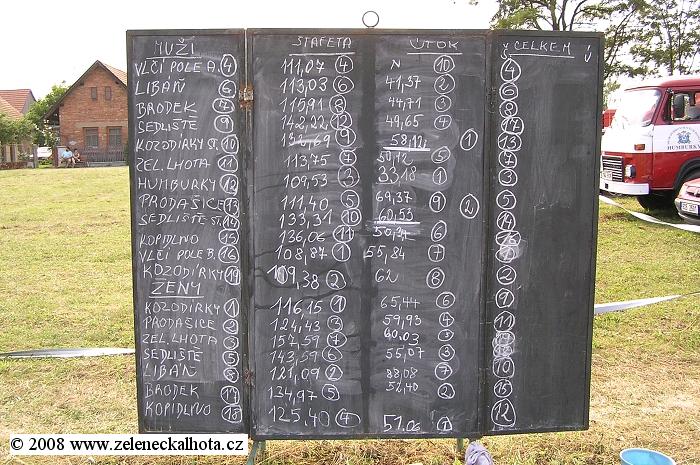 MUŽI ŠTAFETA ÚTOK CELKEM
VLČÍ POLE A. 4 111,07 4 N 10 4
LIBÁŇ 6 113,03 6 41,37 2 6
BRODEK 7 115,91 8 44,71 3 8
SEDLIŠTĚ 9 142,22 12 49,65 4
KOZOJÍDKY ST. 10 9 58,12 13
ŽEL. LHOTA 11 113,75 7 50,12 5 7
HUMBURKY 12 109,53 3 33,18 1 3
PRODAŠICE 13 111,40 5 69,37 9 5
SEDLIŠTĚ ST. 133,31 10 60,53 14
KOPIDLNO 15 136,06 11 6
VLČÍ POLE B. 16 108,87 1 55,84 7 1
KOZODÍRKY 19 109,38 2 62 8 2
ŽENY
KOZODÍRKY 1 116,15 1 65,44 6 9
PRODAŠICE 2 124,43 3 59,93 4 11
ŽEL. LHOTA 3 157,59 7 60,03
SEDLIŠTĚ 5 143,59 6 55,07 3 10
LIBÁŇ 8 121,09 2 88,08 7
BRODEK 134,97 5 52,40 15
KOPIDLNO 18 125,40 4 51,06 12
HUMBURKY
© 2008 www.zeleneckalhota.cz